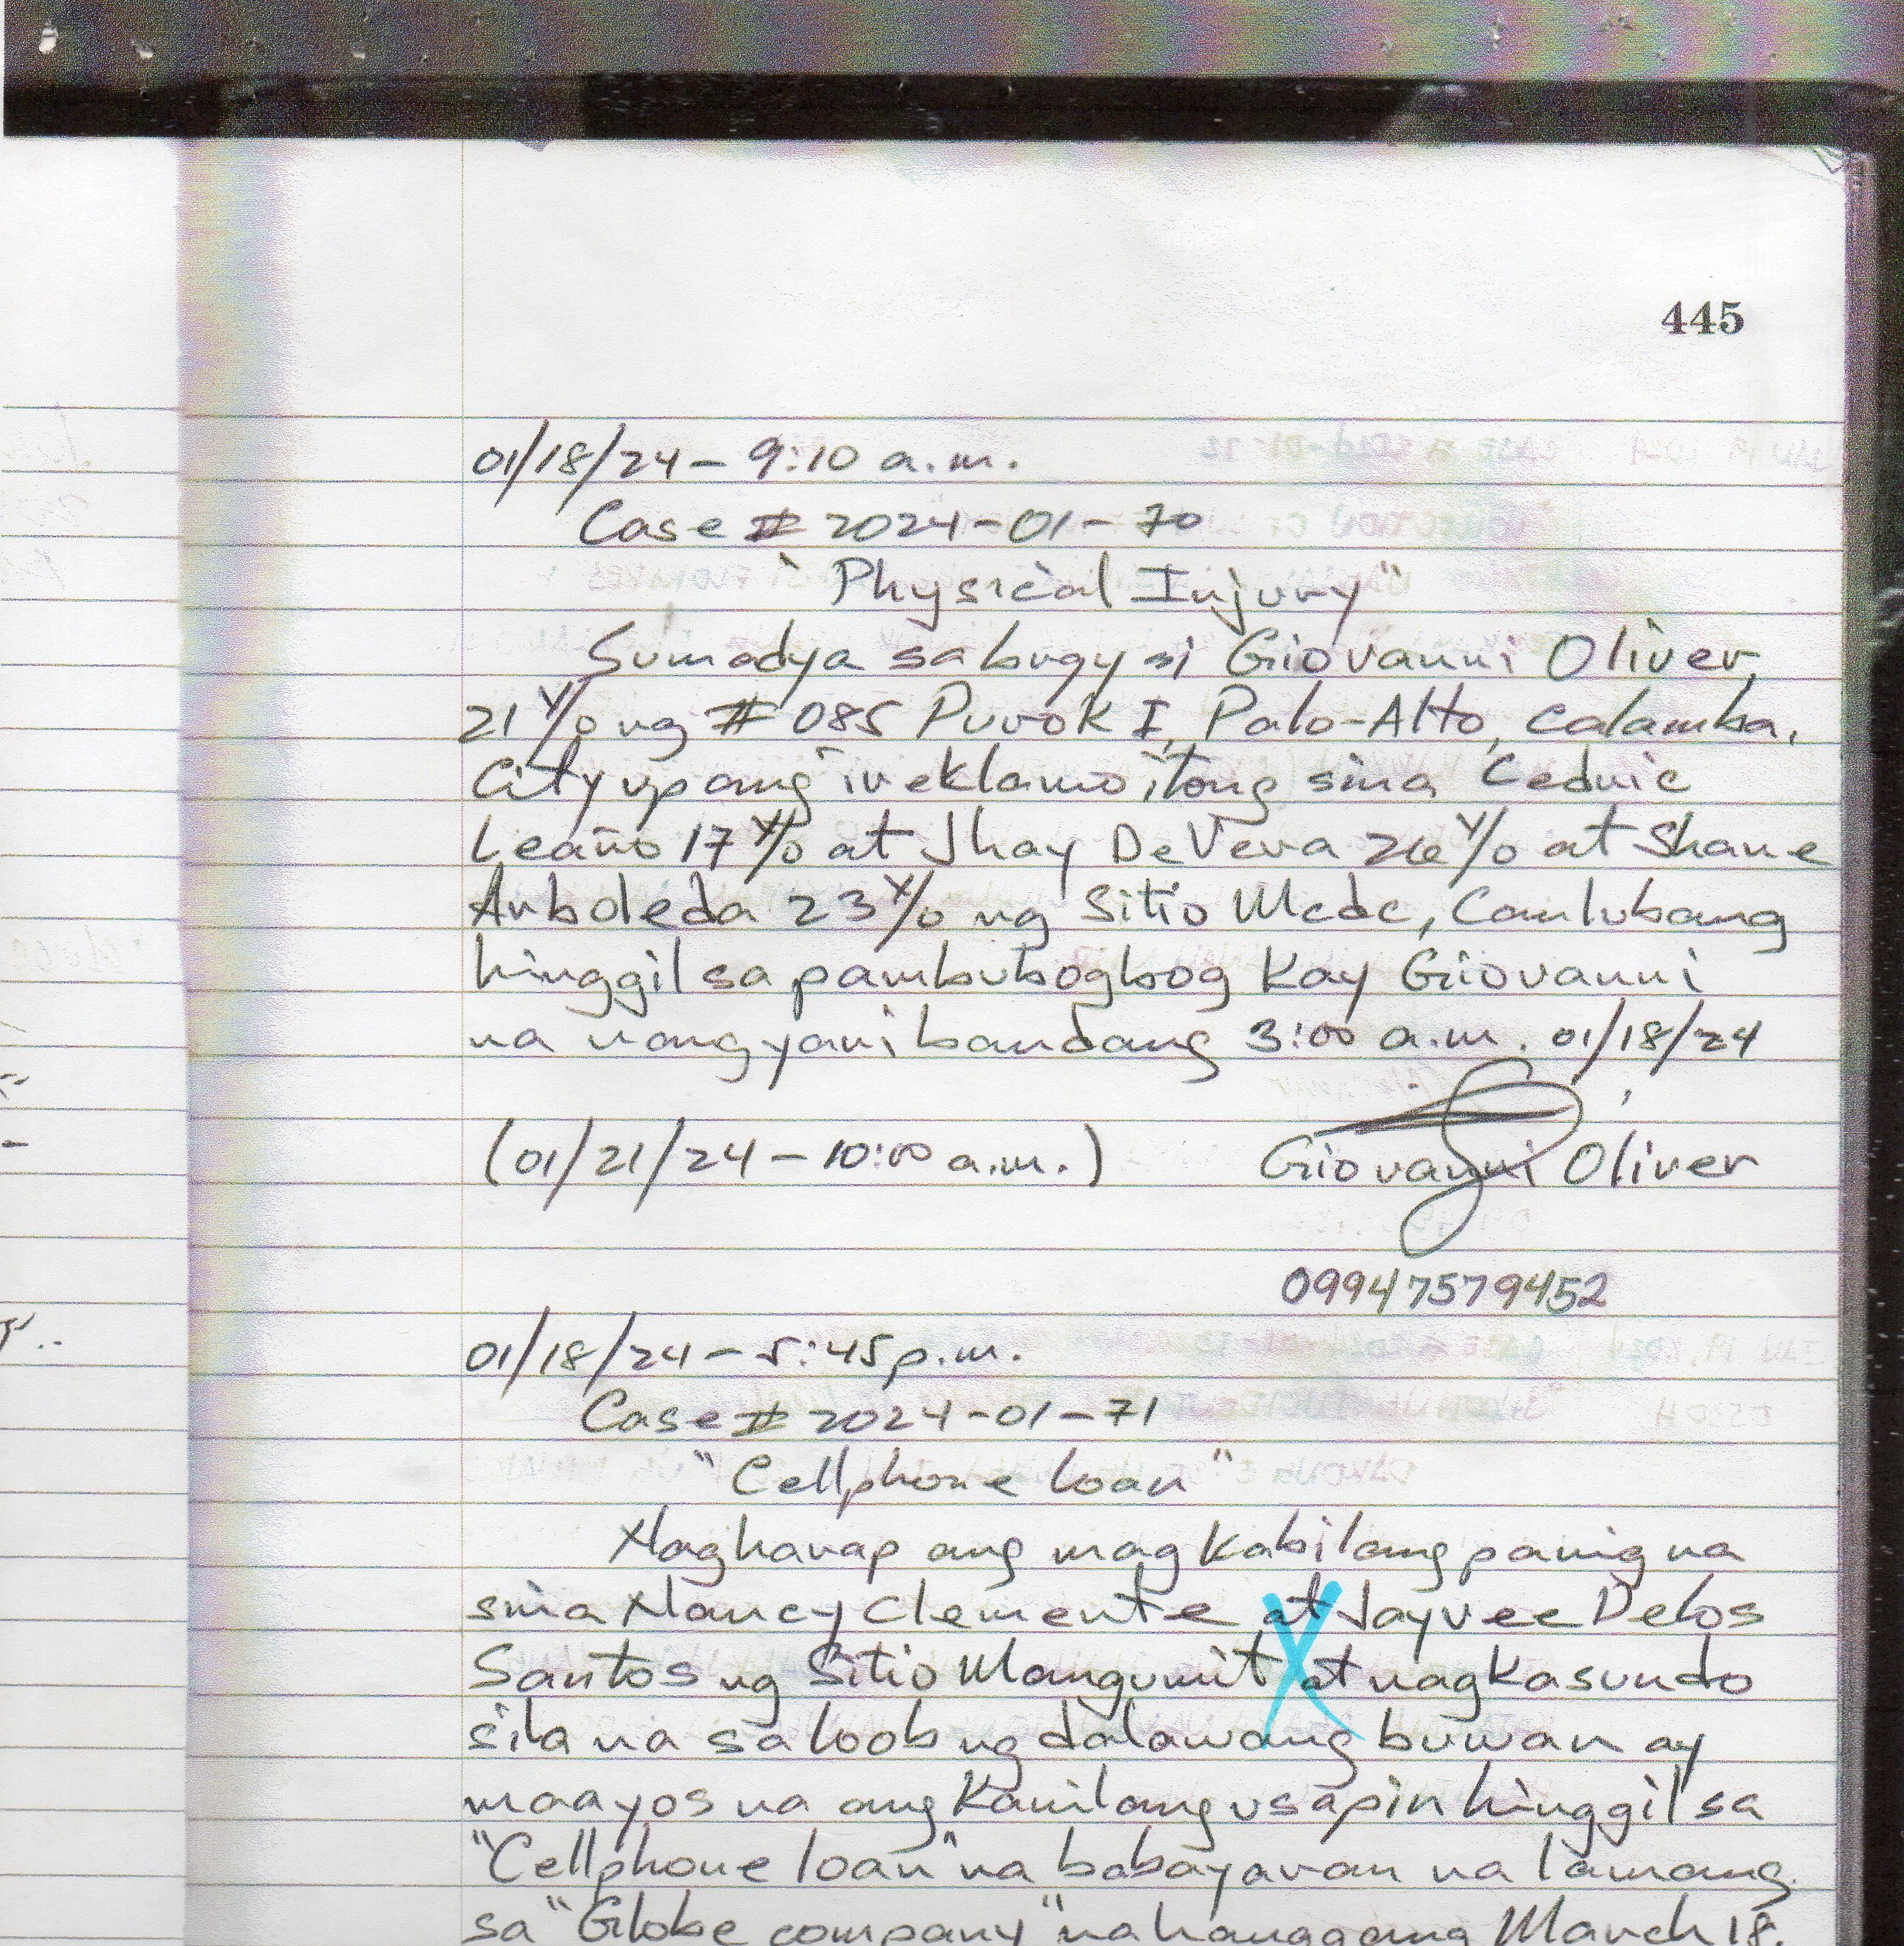 445
01/18/24 - 9:10 a.m.
Case # 2024-01-70
"Physical Injury"
Sumadya sa brgy si Giovanni Oliver,
21 y/o ng # 085 Purok I, Palo-Alto, Calamba,
City upang ireklamo itong sina Cedric
Leaño 17 y/o at Jhay De Vera 26 y/o at Shane
Arboleda 23 y/o ng Sitio Mcdc, Canlubang
hinggil sa pambubogbog kay Giovanni
na nangyari bandang 3:00 a.m. 01/18/24
(01/21/24 - 10:00 a.m.) Giovanni Oliver
09947579452
01/18/24 - 5:45 p.m.
Case # 2024-01-71
"Cellphone loan"
Nagharap ang magkabilang panig na
sina Nancy Clemente at Jayvee Delos
Santos ng Sitio Mangumit at nagkasundo
sila na sa loob ng dalawang buwan ay
maayos na ang kanilang usapin hinggil sa
"Cellphone loan" na babayaran na lamang
sa "Globe company" na hanggang March 18,